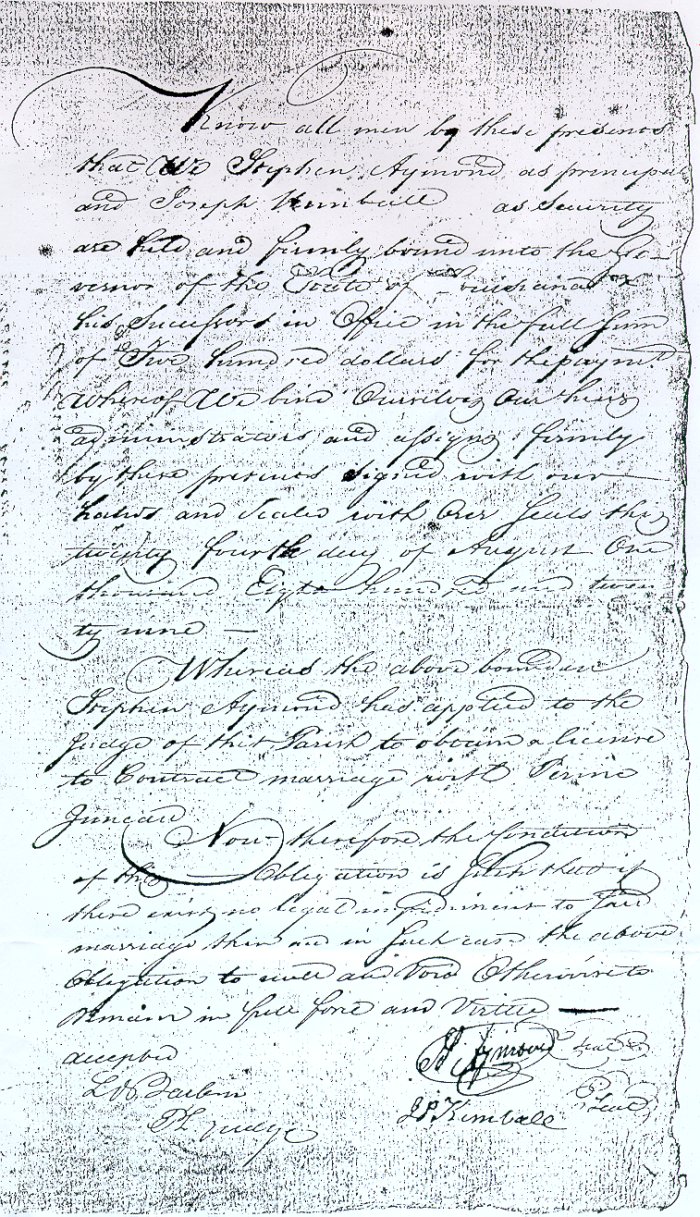 Know all men by these presents
that We Stephen Aymond as principal
and Joseph Kimball as Security
are held and firmly bound unto the Go-
vernor of the State of Louisiana &
his Successors in Office in the full Sum
of Five hundred dollars for the paymt.
Whereof We bind Ourselves Our heirs
administrators and assigns firmly
by these presents signed with our
hands and Sealed with Our Seals this
twenty fourth day of August One
thousand Eight hundred and twen
ty nine —
Whereas the above bounden
Stephen Aymond has applied to the
Judge of this Parish to obtain a license
to Contract marriage with
Juneau
Now therefore the Condition
of this Obligation is Such that if
there exist no legal impediment to Said
marriage then and in Such case the above
Obligation to null and Void Otherwise to
Remain in full force and Virtue —
accepted
St Aymond Seal
Judge
J P Kimball Seal